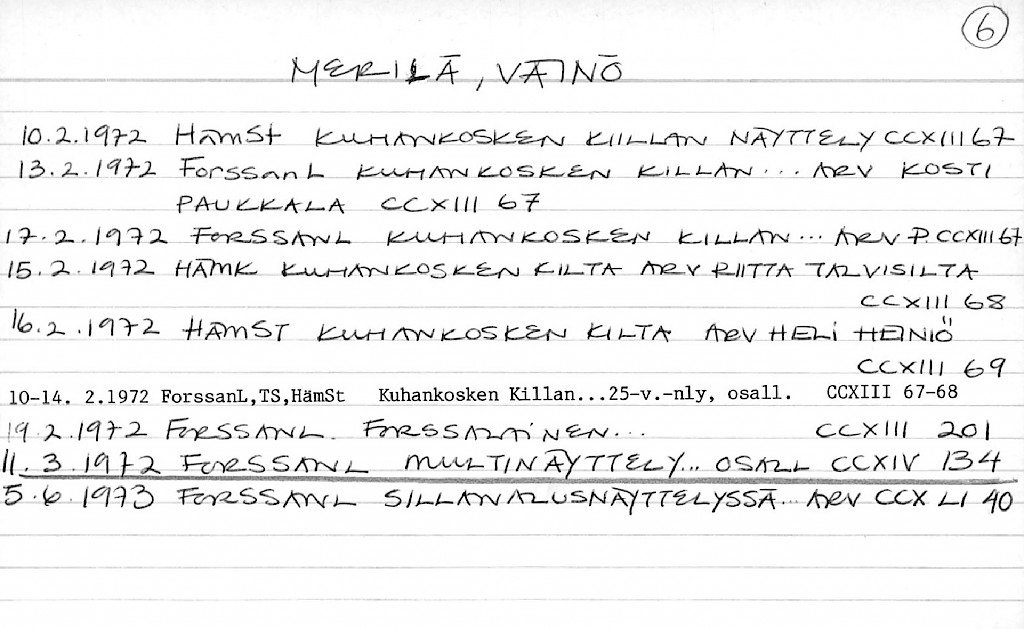 6
MERILÄ, VÄINÖ
10.2.1972 HÄMSt KUHANKOSKEN KIILLAN NÄYTTELY CCXIII 67
13.2.1972 ForssanL KUHANKOSKEN KILLAN... ARV KOSTI
PAUKKALA CCXIII 67
17.2.1972 FORSSANL KUHANKOSKEN KILLAN... ARV P. CCXIII 67
15.2.1972 HÄMK KUHANKOSKEN KILTA ARV RIITTA TALVISILTA
CCXIII 68
16.2.1972 HÄMST KUHANKOSKEN KILTA ARV HELI HEINIÖ
CCXIII 69
10-14. 2.1972 ForssanL,TS,HämSt Kuhankosken Killan...25-v.-nly, osall. CCXIII 67-68
19.2.1972 FORSSANL. FORSSALAINEN... CCXIII 201
11.3.1972 FORSSANL MULTINÄYTTELY... OSALL CCXIV 134
5.6.1973 FORSSANL SILLANALUSNÄYTTELYSSÄ... ARV CCXLI 40